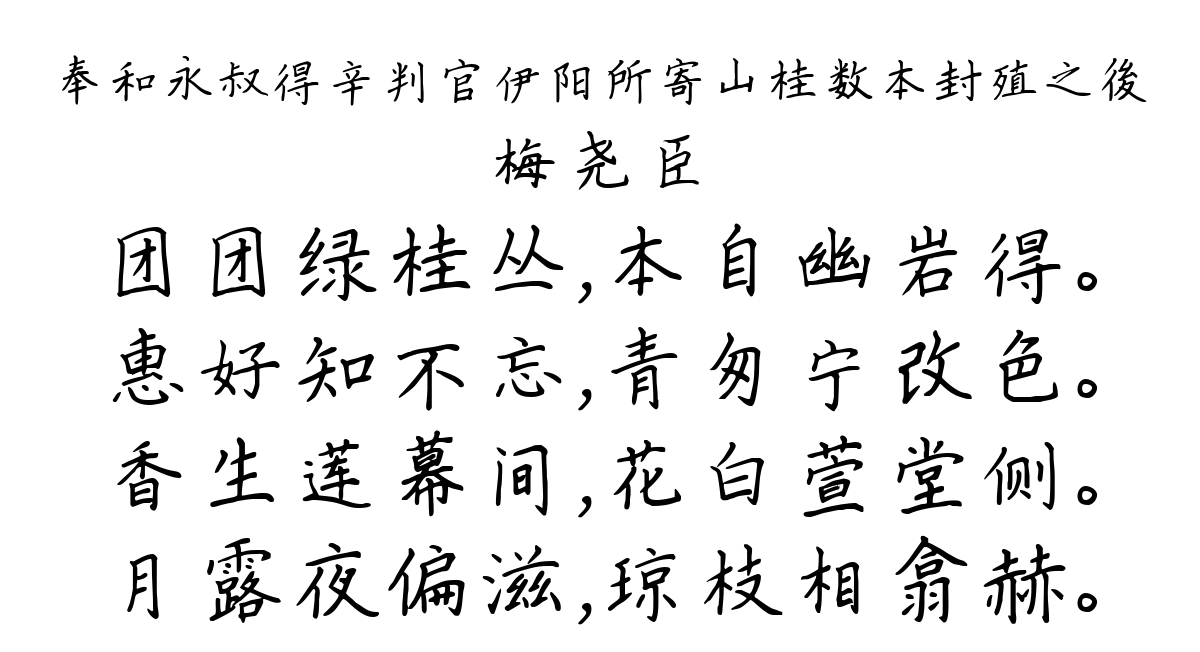 奉和永叔得辛判官伊阳所寄山桂数本封殖之後
梅尧臣
团团绿桂丛,本自幽岩得。
惠好知不忘,青匆宁改色。
香生莲幕间,花白萱堂侧。
月露夜偏滋,琼枝相翕赫。